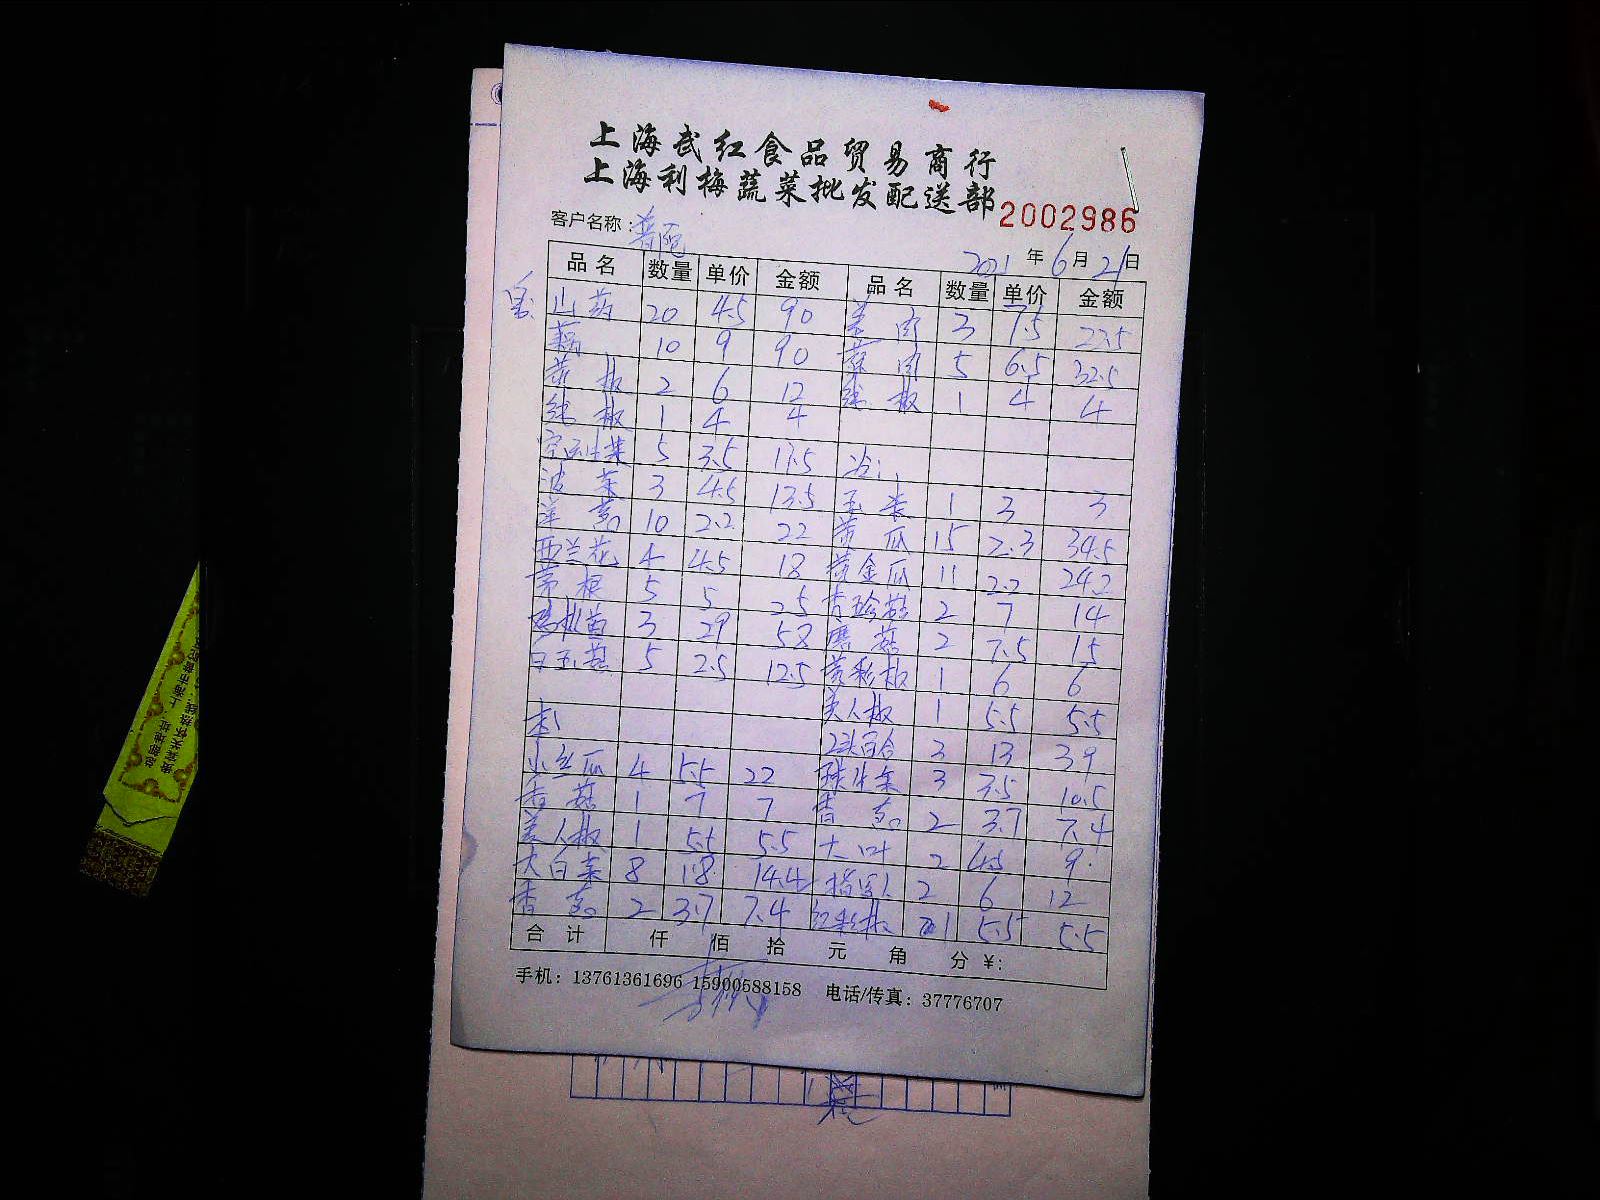 上海武红食品贸易商行
上海利梅蔬菜批发配送部 2002986
客户名称：普陀
2021年6月21日
品名 数量 单价 金额 品名 数量 单价 金额
山药 20 4.5 90 姜肉 3 7.5 22.5
藕 10 9 90 蒜肉 5 6.5 32.5
2 6 12 线椒 1 4 4
线椒 1 4 4
5 3.5 17.5 冷：
波菜 3 4.5 13.5 玉米 1 3 3
洋葱 10 2.2 22 黄瓜 15 2.3 34.5
西兰花 4 4.5 18 黄金瓜 11 2.2 24.2
茅根 5 5 25 杏珍菇 2 7 14
3 29 58 蘑菇 2 7.5 15
白玉菇 5 2.5 12.5 黄彩椒 1 6 6
美人椒 1 5.5 5.5
2头百合 3 13 39
小丝瓜 4 5.5 22 球生菜 3 3.5 10.5
香菇 1 7 7 香葱 2 3.7 7.4
美人椒 1 5.5 5.5 大叶 2 4.5 9
大白菜 8 1.8 14.4 2 6 12
香葱 2 3.7 7.4 红彩椒 1 5.5 5.5
合计 仟 佰 拾 元 角 分 ¥：
手机：13761361696 15900588158 电话/传真：37776707